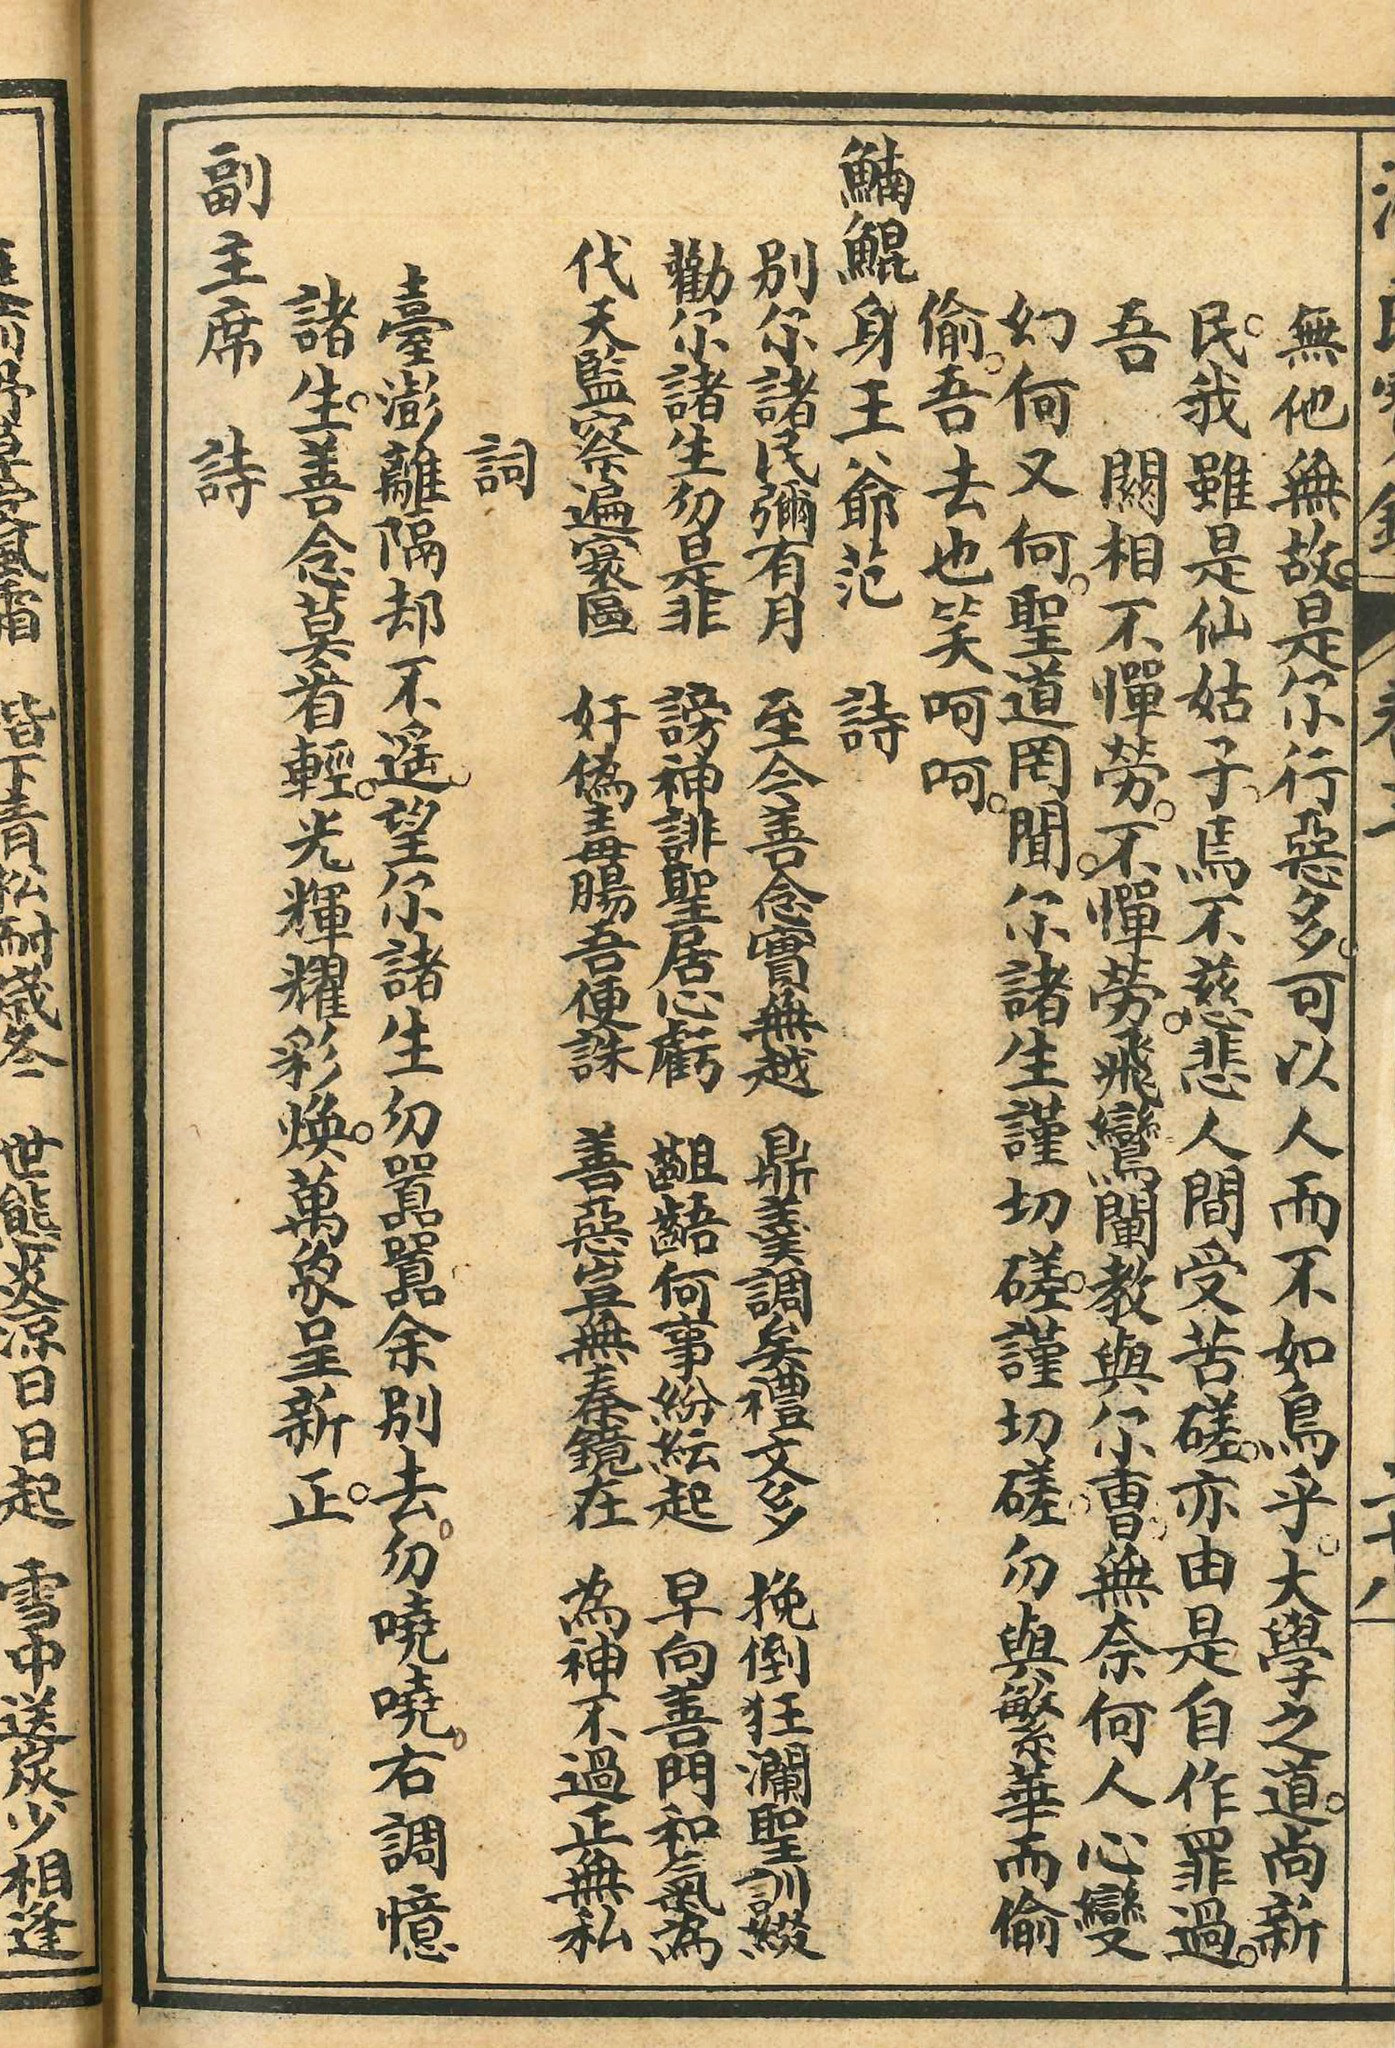 無他無故是尔行惡多可以人而不如鳥乎大學之道尚新
民我雖是仙姑子焉不慈悲人間受苦磋亦由是自作罪過
吾　關相不憚勞不憚勞飛鸞闡教與尔曹無奈何人心變
幻何又何聖道罔聞尔諸生謹切磋謹切磋勿與繁華而偷
偷吾去也笑呵呵
鯆鯤身王爺范　詩
別尔諸民彌有月　至今善念實無越　鼎羹調矣禮文多　挽倒狂瀾聖訓綴
勸尔諸生勿是非　謗神誹聖居心虧　齟齬何事紛紜起　早向善門和氣為
代天監察遍寰區　奸偽毒腸吾便誅　善惡豈無秦鏡在　為神不過正無私
詞
臺澎離隔却不遙望尔諸生勿囂囂余別去勿嘵嘵右調憶
諸生善念莫看輕光輝耀彩煥萬象呈新正
副主席　詩
階下青松耐歲冬　世態炎涼日日起　雪中送炭少相逢